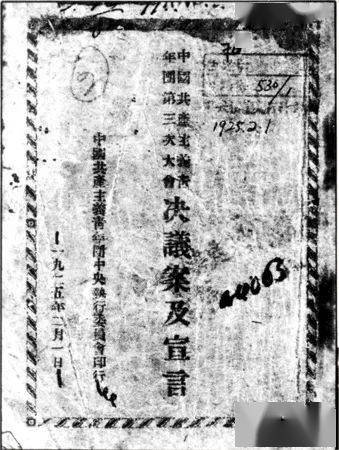 中國共產主義青
年團第三次大會
决議案及宣言
中國共產主義青年團中央執行委員會印行
一九二五年二月一日
530/1
1925.2.1